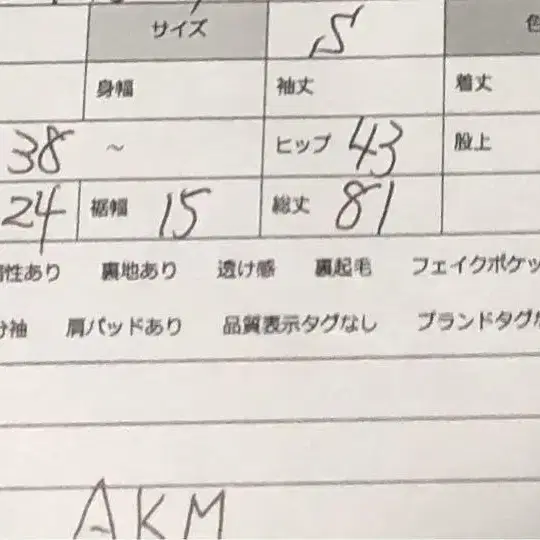 サイズ S 色
身幅 袖丈 着丈
38 ~ ヒップ 43 股上
24 裾幅 15 総丈 81
性あり 裏地あり 透け感 裏起毛 フェイクポケッ
分袖 肩パッドあり 品質表示タグなし ブランドタグな
AKM